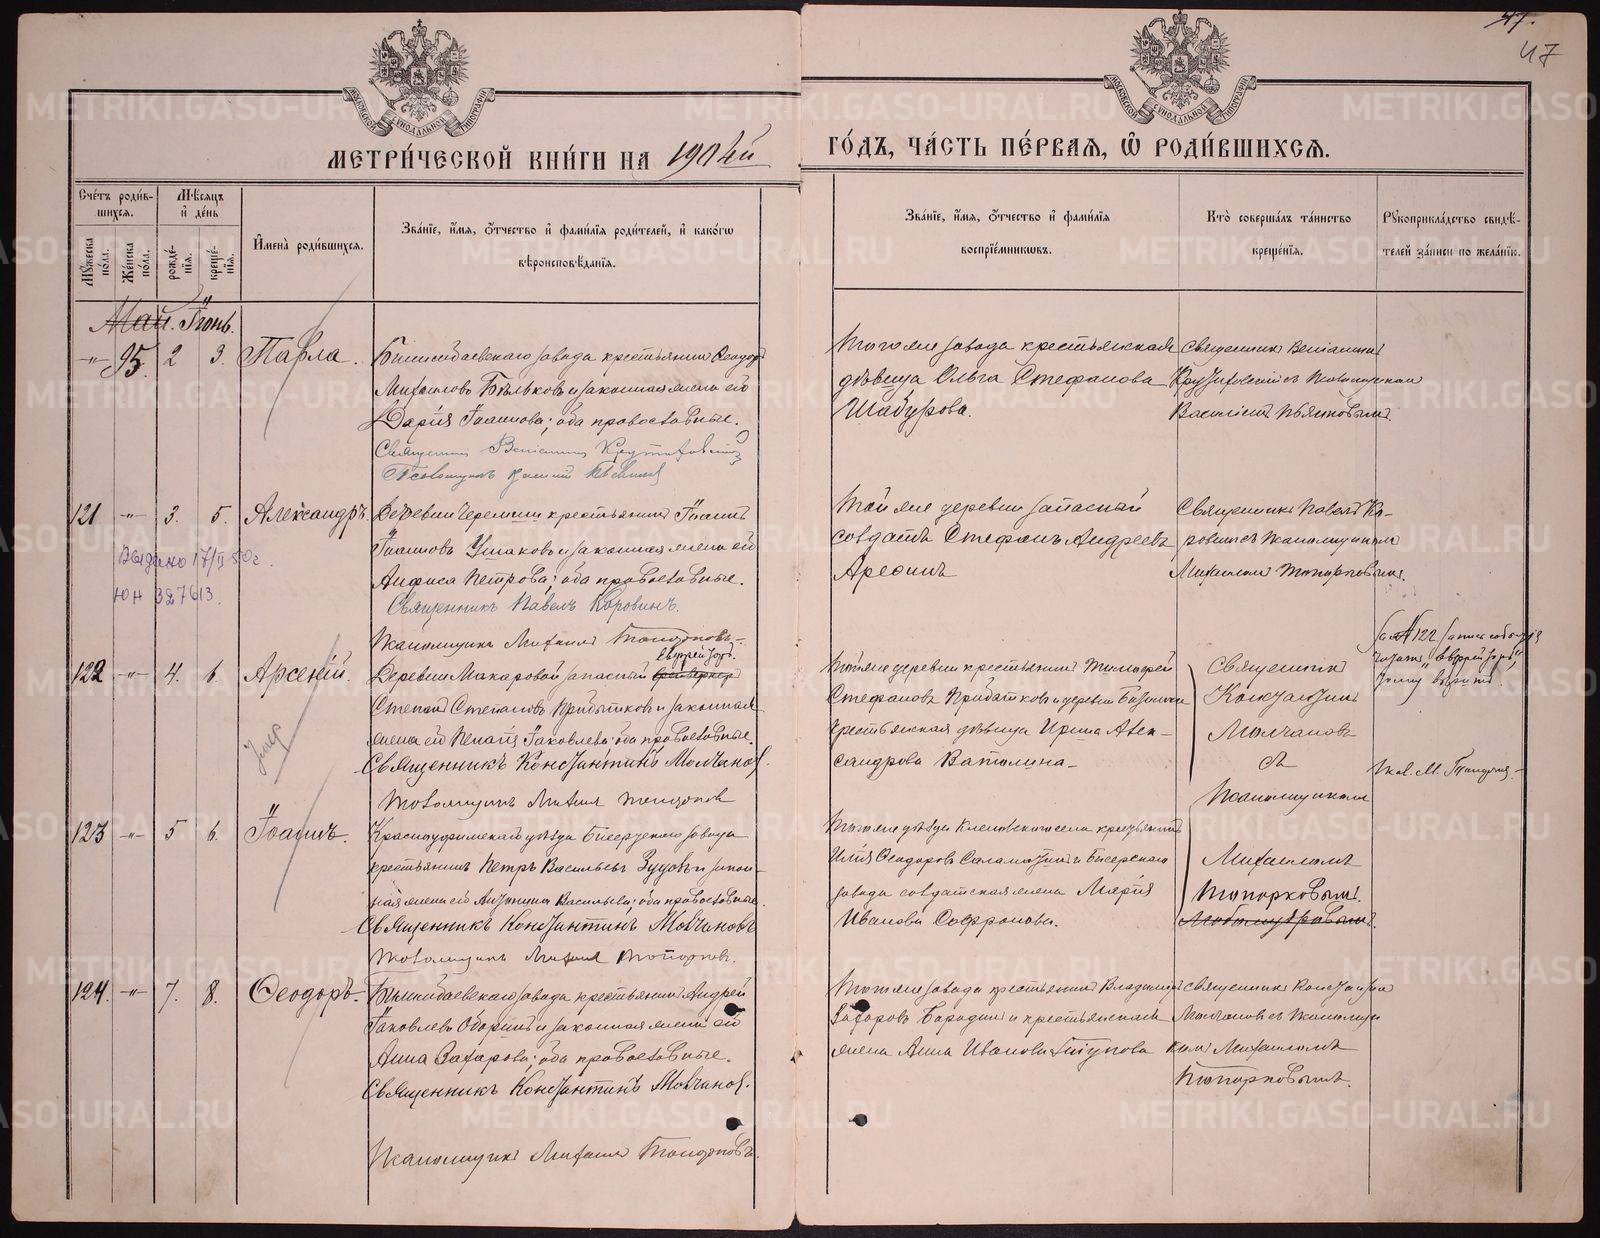 47.
47
МЕТРИ́ЧЕСКОЙ КНИ́ГИ НА 1904й ГО́ДЪ, ЧА́СТЬ ПЕ́РВАѦ, Ѿ РОДИ́ВШИХСѦ.
Сче́тъ роди́в-шихсѧ.
Мꙋжеска по́ла.
Же́нска по́ла.
Мѣсѧцъ и де́нь
рожде́-нїѧ.
креще́-нїѧ.
Имена̀ роди́вшихсѧ.
Зва́нїе, и́мѧ, ѻ́тчество и фами́лїѧ роди́телей, и како́гѡ вѣроисповѣ́данїѧ.
Зва́нїе, и́мѧ, ѻ́тчество и фами́лїѧ воспрїе́мникѡвъ.
Кто̀ соверша́лъ та́инство креще́нїѧ.
Рꙋкоприкла́дство свидѣ́-телей за́писи по жела́нїю.
Май. Іюнь.
-"- 95. 2 3. Павла.
Билимбаевскаго завода крестьянинъ Ѳеодоръ
Михаиловъ Бѣльковъ и законная жена его
Дарія Іоаннова; оба православные.
Священникъ Веніаминъ
Того же завода крестьянская
дѣвица Ольга Стефанова
Шабурова.
Священникъ Веніаминъ
съ псаломщикомъ
Василіемъ
121 -"- 3. 5. Александръ.
Выдано 17/II 50г.
ЮН 327613.
Деревни Черемши крестьянинъ Іоаннъ
Іоанновъ Ушаковъ и законная жена его
Анфиса Петрова; оба православные.
Священникъ Павелъ Коровинъ.
Псаломщикъ Михаилъ Топорковъ
Той же деревни запасный
солдатъ Стефанъ Андреевъ
Арефинъ
Священникъ Павелъ Ко-
ровинъ съ псаломщикомъ
Михаиломъ Топорковымъ.
122 -"- 4. 6. Арсеній.
Умер
Деревни Макаровой запасный
Стефанъ Степановъ Прибытковъ и законная
жена его Іаковлева; оба православные.
Священникъ Константинъ Молчановъ
Псаломщикъ Михаилъ Топорковъ
Той же деревни крестьянинъ Тимофей
Стефановъ Прибытковъ и деревни
крестьянская дѣвица Ирина Алек-
сандрова Ватолина
Священникъ
Константинъ
Молчановъ
съ
Псаломщикомъ
Михаиломъ
Топорковымъ.
123 -"- 5 6. Іоаннъ.
Красноуфимскаго уѣзда Бисертскаго завода
крестьянинъ Петръ Васильевъ Зуевъ и закон-
ная жена его Антонина Васильева; оба православные.
Священникъ Константинъ Молчановъ
Псаломщикъ Михаилъ Топорковъ.
Того же уѣзда Кленовскаго села крестьянинъ
Илія Ѳеодоровъ и Бисерскаго
завода солдатская жена Марія
Иванова Софронова.
124. -"- 7. 8. Ѳеодоръ.
Билимбаевскаго завода крестьянинъ Андрей
Іаковлевъ Оборинъ и законная жена его
Анна Захарова; оба православные.
Священникъ Константинъ Молчановъ.
Псаломщикъ Михаилъ Топорковъ.
Того же завода крестьянинъ Владиміръ
Захаровъ Бородинъ и крестьянская
жена Анна Иванова
Священникъ Константинъ
Молчановъ съ псаломщи-
комъ Михаиломъ
Топорковымъ.
METRIKI.GASO-URAL.RU